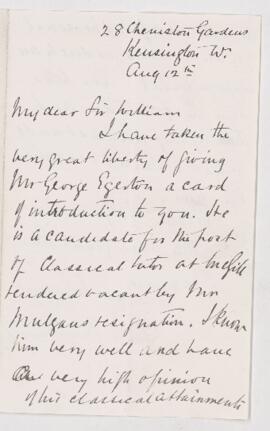 28 Cheniston Gardens
Kensington W.
Aug 12th
My dear Sir William
I have taken the
very great liberty of giving
Mr George Egerton a card
of introduction to you. He
is a candidate for the post
of Classical tutor at McGill
rendered vacant by Mr
Mulgans resignation. I know
him very well and have
very high opinion
of his classical attainments